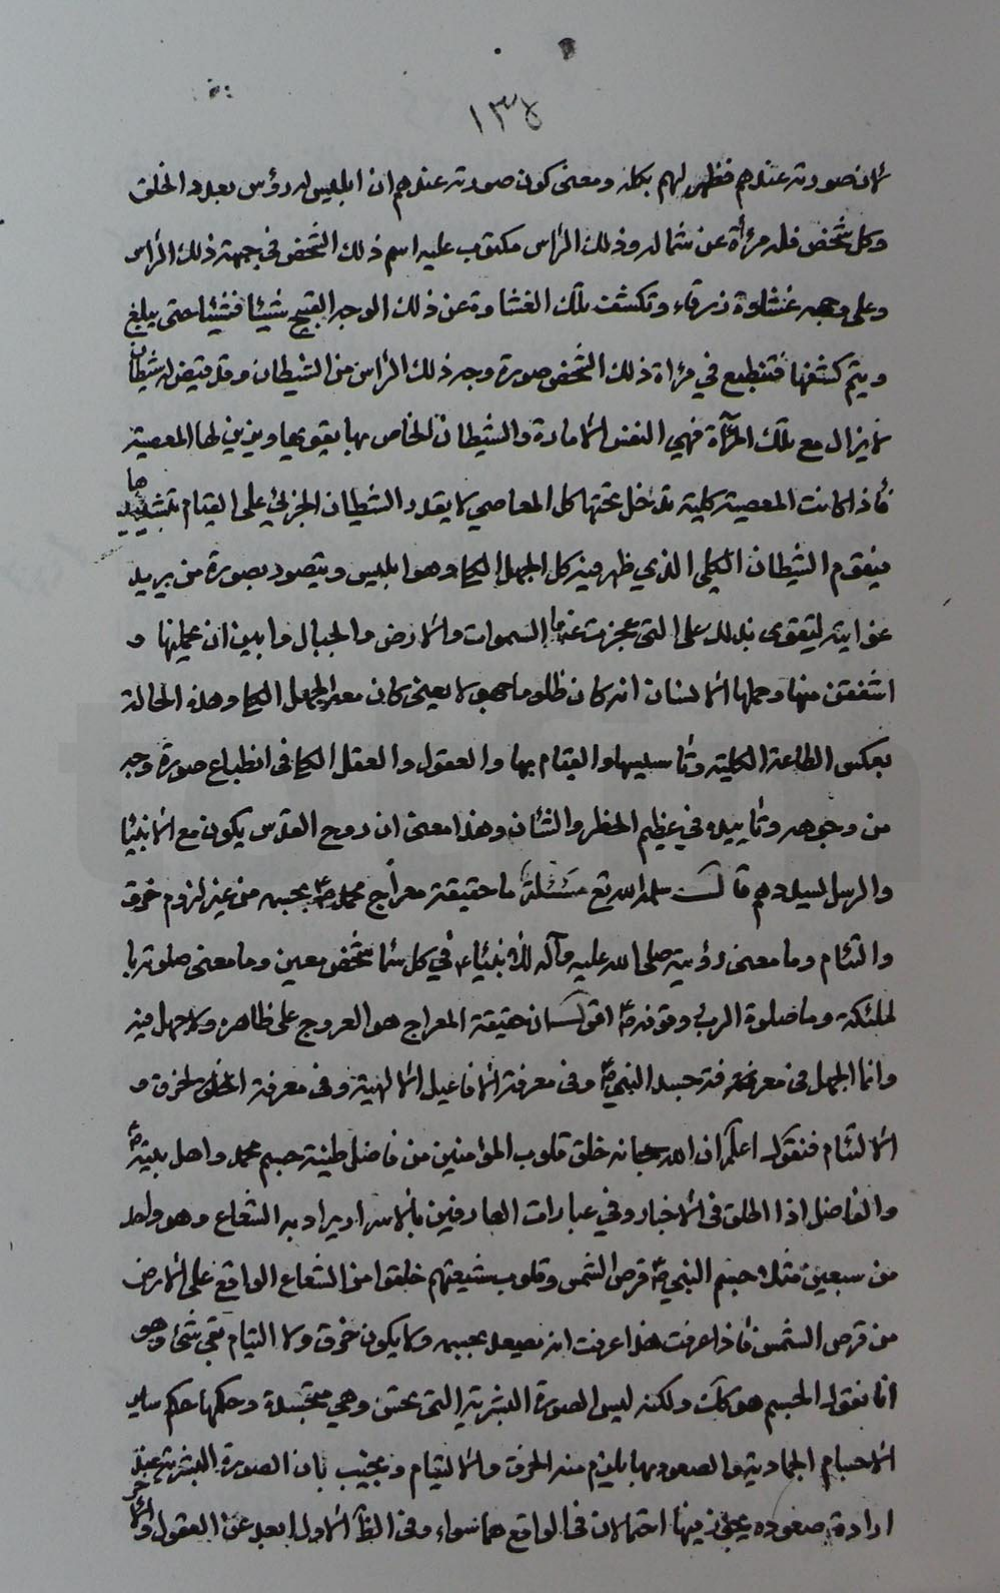 ١٣٥
لان صورته عندهم فظهر لهم بكله ومعنى كون صورته عندهم ان ابليس له رؤس بعدد الخلق
وكل شخص فله مرأة عن شماله وذلك الراس مكتوب عليه اسم ذلك الشخص في جهة ذلك الراس
وعلى وجهه غشاوة زرقاء وتكشف تلك الغشاوة عن ذلك الوجه القبيح شيئا فشيئا حتى يبلغ
ويتم كشفها فتنطبع في مرأة ذلك الشخص صورة وجه ذلك الراس من الشيطان وقد قيض له شيطان
لا يزال مع تلك المرآة فهي النفس الامارة والشيطان الخاص بها يقويها ويزين لها المعصية
فاذا كانت المعصية كلية تدخل تحتها كل المعاصي لا يقدر الشيطان الجزئي على القيام بتشييدها
فيقوم الشيطان الكلي الذي ظهر فيه كل الجهل الكلي وهو ابليس ويتصور بصورة من يريد
غوايته ليتقوى بذلك على التى عجزت عنها السموات والارض والجبال وابين ان يحملنها و
اشفقن منها وحملها الانسان انه كان ظلوما جهولا يعني كان معه الجهل الكلي وهذه الحالة
بعكس الطاعة الكلية وتأسيسها والقيام بها والعقول والعقل الكلي في انطباع صورة وجه
من وجوهه وتأييده في عظيم الخطر والشان وهذا معنى ان روح القدس يكون مع الانبيا
والرسل ليسددهم قال سلمه الله تع مسئلة ما حقيقة معراج محمد ص بجسمه من غير لزوم خرق
والتئام وما معنى رؤيته صلى الله عليه وآله للأنبياء في كل سما شخص معين وما معنى صلوته با
لملئكة وما صلوة الرب وقوفه ص اقول ان حقيقة المعراج هو العروج على ظاهره ولا جهل فيه
وانما الجهل في معرفة جسد النبي ص وفى معرفة الافاعيل الالهية وفى معرفة الخلق الخرق و
الالتئام فنقول اعلم ان الله سبحانه خلق قلوب المؤمنين من فاضل طينة جسم محمد واهل بيته ص
والفاضل اذا اطلق في الاخبار وفي عبارات العارفين بالاسرار يراد به الشعاع وهو واحد
من سبعين مثلا جسم النبي ص قرص الشمس وقلوب شيعتهم خلقوا من الشعاع الواقع على الارض
من قرص الشمس فاذا عرفت هذا عرفت انه يصعد بجسمه ولا يكون خرق ولا التيام بقي شئ وهو
انا نقول الجسم هو كك ولكنه ليس الصورة البشرية التي تحس وهي متجسدة وحكمها حكم ساير
الاجسام الجمادية والصعود بها يلزم منه الخرق والالتيام ونجيب بان الصورة البشرية عند
ارادة صعوده يجوز فيها احتمالان في الواقع هما سواء وفى الظ الاول ابعد عن العقول والآخر